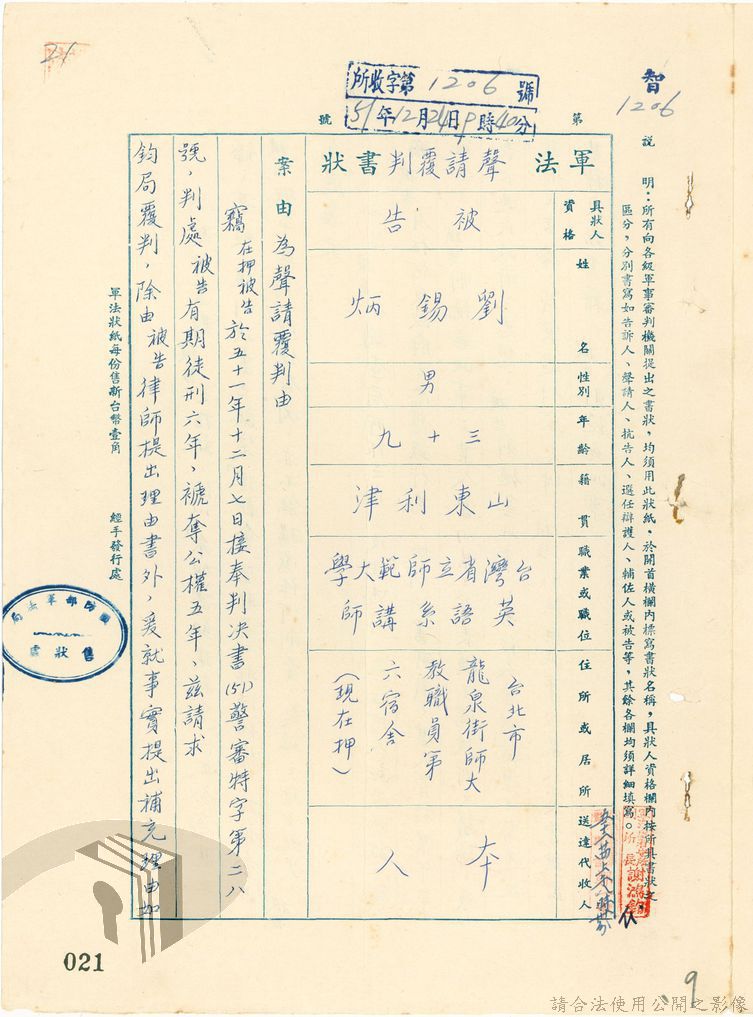 21
智
1206
所收字第1206號
51年12月24日9時40分
第
號
說明：所有向各級軍事審判機關提出之書狀，均須用此狀紙，於開首橫欄內標寫書狀名稱，具狀人資格欄內按所具書狀文，
區分，分別書寫如告訴人、聲請人、抗告人、選任辯護人、輔佐人或被告等，其餘各欄均須詳細填寫。
所長謝鴻
軍法聲請覆判書狀
具狀人資格
被告
姓名
劉錫炳
性別
男
年齡
三十九
籍貫
山東利津
職業或職位
台灣省立師範大學
英語系講師
住所或居所
台北市
龍泉街師大
教職員第
六宿舍
（現在押）
送達代收人
本人
案由
為聲請覆判由
竊在押被告於五十一年十二月七日接奉判決書(51)警審特字第二八
號，判處被告有期徒刑六年、褫奪公權五年、茲請求
鈞局覆判，除由被告律師提出理由書外，爰就事實提出補充理由如
軍法狀紙每份售新台幣壹角
經手發行處
國防部軍法局
售狀處
021
9
請合法使用公開之影像